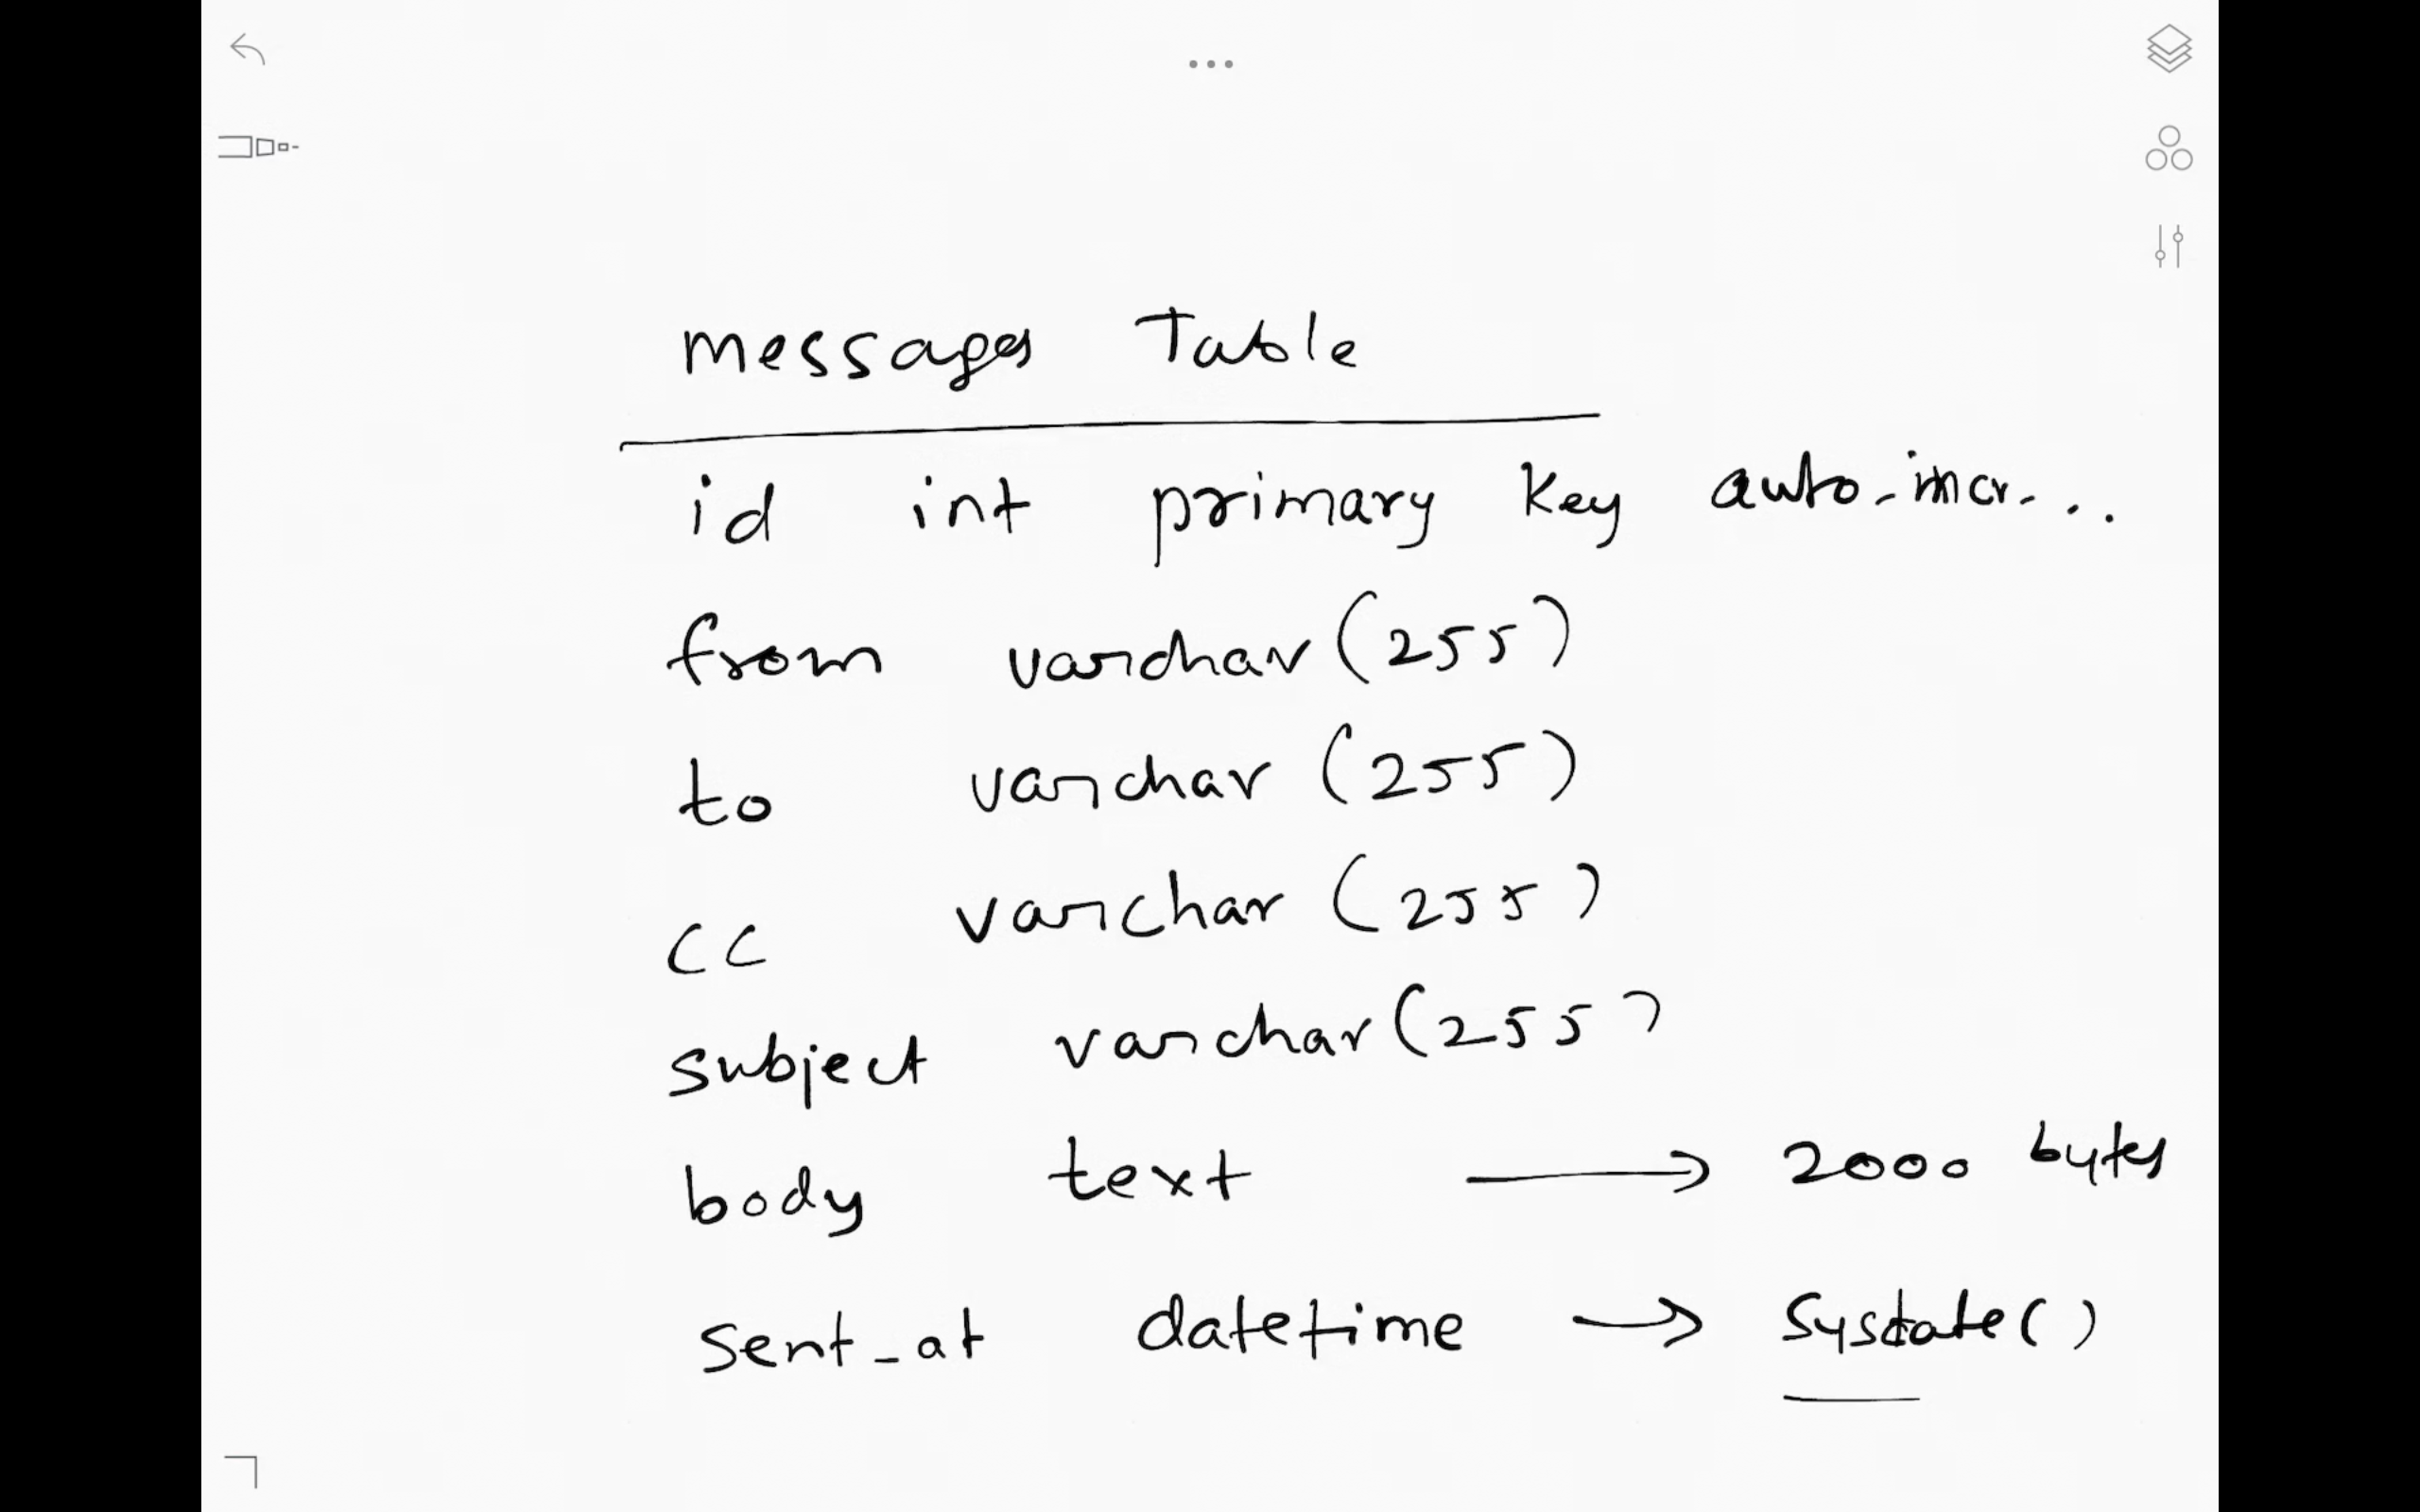 messages Table
id int primary key auto-incr...
from varchar(255)
to varchar (255)
cc varchar (255)
subject varchar(255)
body text → 2000 bytes
sent_at datetime → Sysdate()